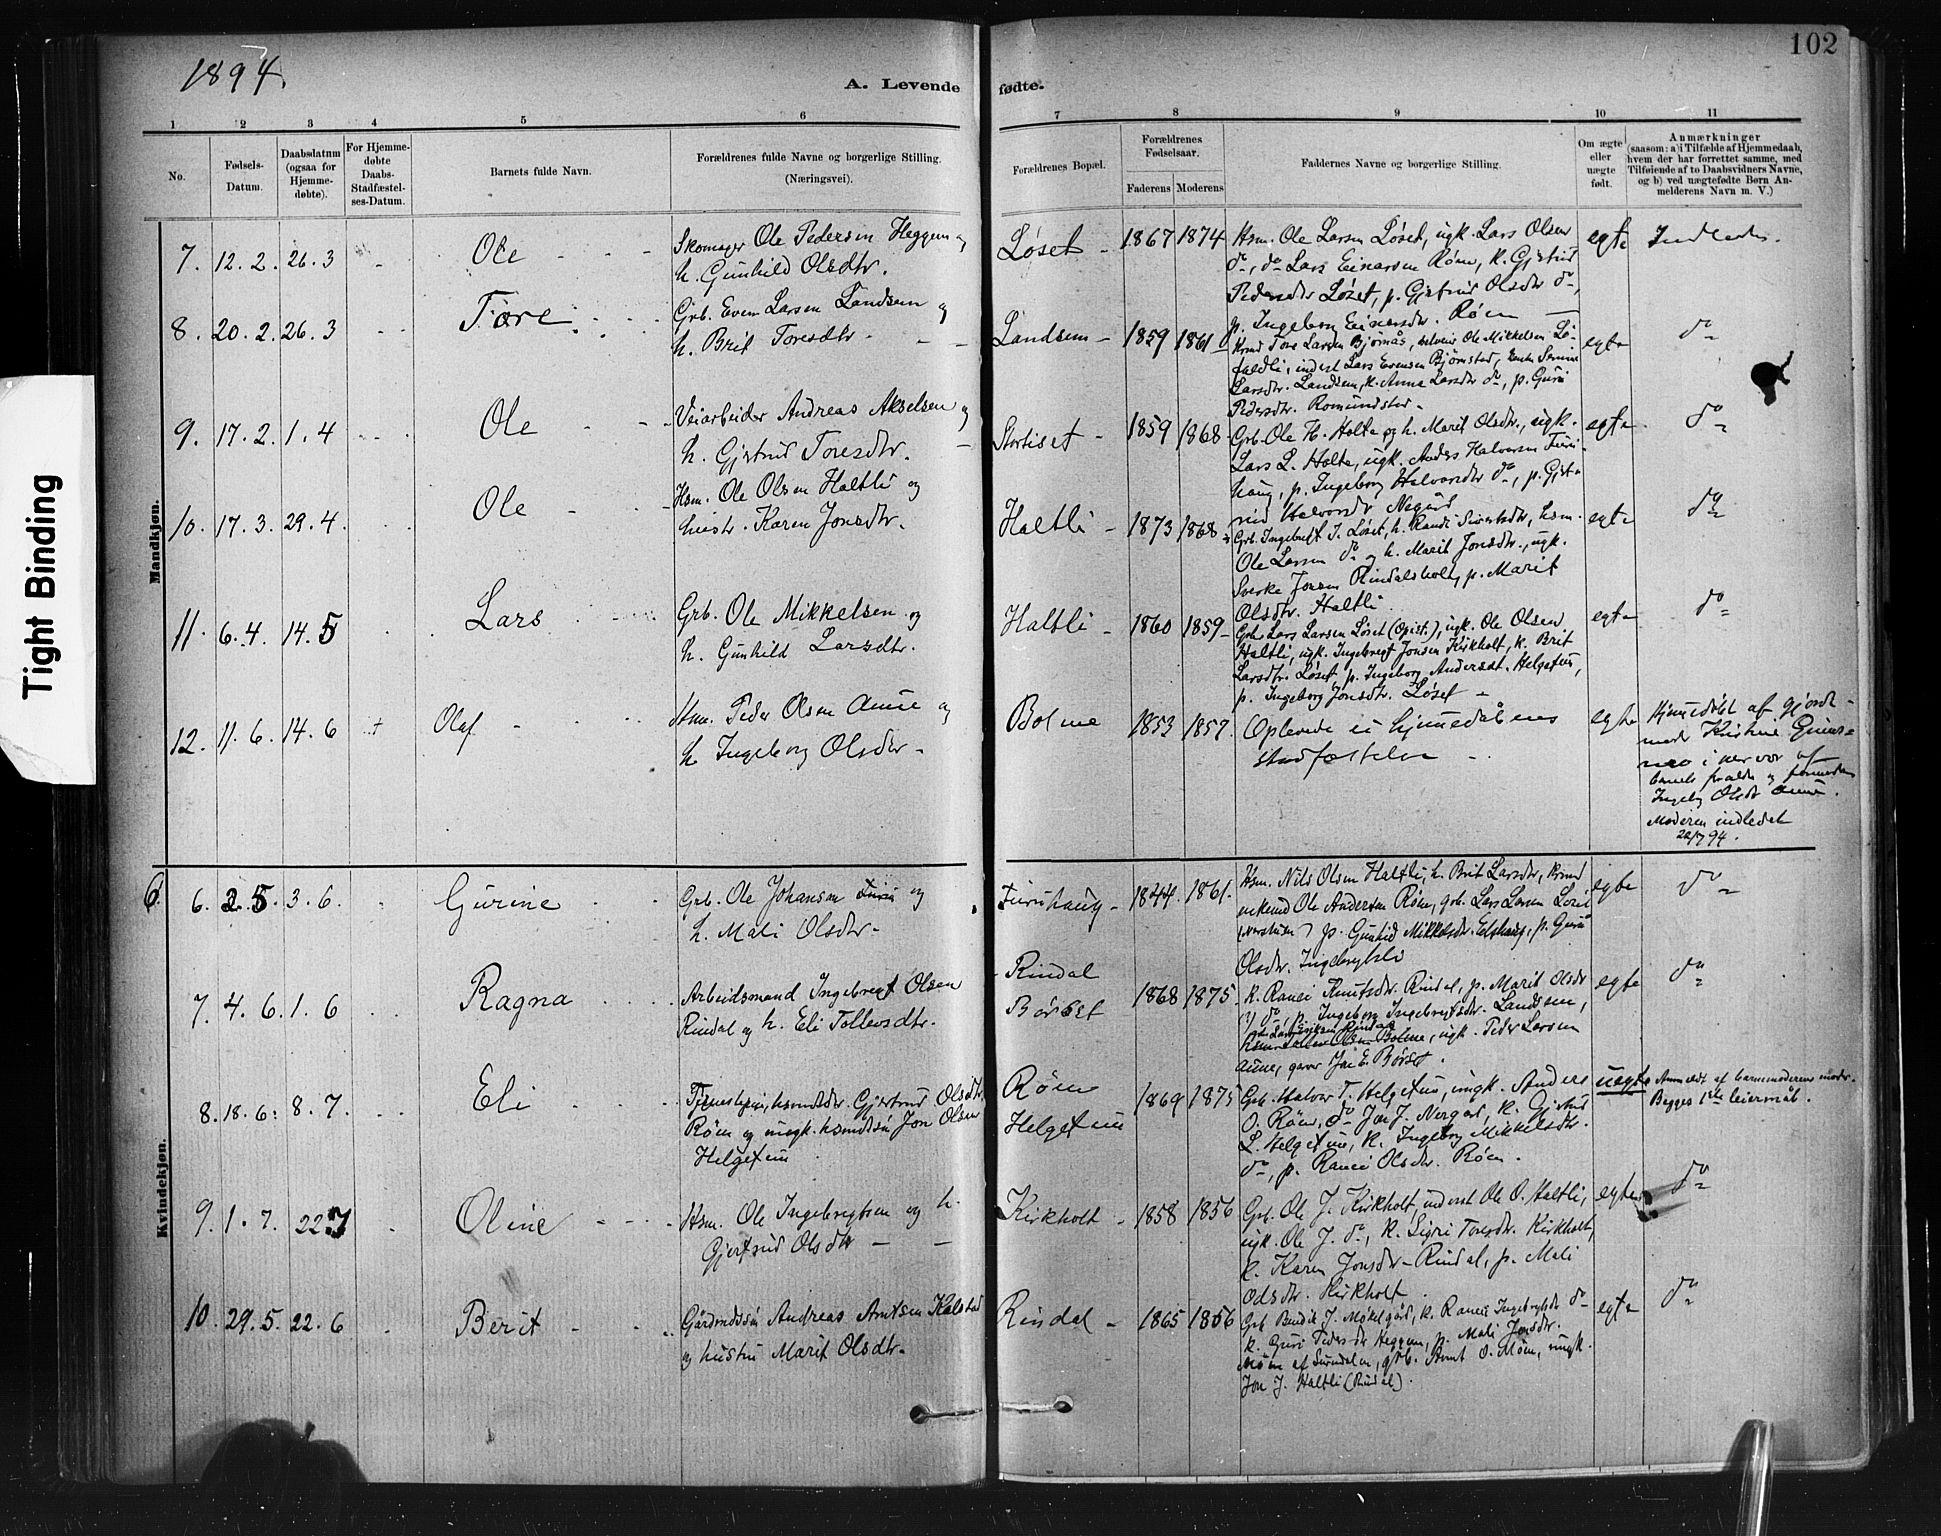 1894.
A. Levende fødte.
102
1 2 3 4 5 6 7 8 9 10 11
No.
Fødsels-Datum.
Daabsdatum (ogsaa for Hjemmedøbte).
For Hjemmedøbte Daabs-Stadfæstelses-Datum.
Barnets fulde Navn.
Forældrenes fulde Navne og borgerlige Stilling. (Næringsvei).
Forældrenes Bopæl.
Forældrenes Fødselsaar.
Faderens Moderens
Faddernes Navne og borgerlige Stilling.
Om ægte eller uægte født.
Anmærkninger (saasom: a) i Tilfælde af Hjemmedaab, hvem der har forrettet samme, med Tilføiende af to Daabsvidners Navne, og b) ved uægtefødte Børn Anmelderens Navn m. V.)
Tight Binding
Mandkjøn.
7. 12.2. 26.3 Ole
Skomager Ole Pedersen Heggem og
h. Gunhild Olsdtr.
Løset 1867 1874
Hsm. Ole Larsen Løset, ugk. Lars Olsen
do, do Lars Einarsen Røen, k. Gjertrud
Pedersdtr Løset, p. Gjertrud Olsdtr do,
p. Ingeborg Einarsdtr. Røen
egte
8. 20.2. 26.3 Tore
Grb. Even Larsen Landsem og
h. Brit Toresdtr
Landsem 1859 1861
Tore Larsen Bjørnås, Ole Mikkelsen
inderst Lars Evensen Bjørnstad,
Larsdtr. Landsem, k. Anna Larsdtr do, p. Guri
Pedersdtr. Romundstad
egte do
9. 17.2. 1.4 Ole
Veiarbeider Andreas Akselsen og
h. Gjertrud Toresdtr.
1859 1868
Grb. Ole H. Holte og h. Marit Olsdtr., ugk.
Lars L. Holte, ugk. Anders Halvorsen Furu
haug, p. Ingeborg Halvorsdtr do, p. Gjert
rud Halvorsdtr
egte do
10. 17.3. 29.4. Ole
Hsm. Ole Olsen Haltli og
hustr. Karen Jonsdtr.
Haltli 1873 1868
Grb. Ingebrigt J. Løset, h. Randi Sivertsdtr, hsm.
Ole Larsen do og h. Marit Jonsdtr., ugk.
Sverke Jonsen Rindalsholt, p. Marit
Olsdtr. Haltli.
egte do
11. 6.4. 14.5 Lars
Grb. Ole Mikkelsen og
h. Gunhild Larsdtr.
Haltli 1860 1859
Grb Lars Larsen Løset (Opist.), ugk. Ole Olsen
Haltli, ugk. Ingebregt Jonsen Kirkholt, k. Brit
Larsdtr. Løset, p. Ingeborg Andersdt. Helgetun,
p. Ingeborg Jonsdtr. Løset
egte do
12. 11.6. 14.6 + Olaf
Hsm. Peder Olsen Aune og
h. Ingeborg Olsdtr
Bolme 1853 1857.
Oplevede ei hjemmedåbens
stadfæstelse
egte
Hjemmedøbt af gjord-
mor Kristine
i nærvær af
barnets og
Ingebg Olsdt Aune.
Moderen indledet
22/7 94.
Kvindekjøn.
6
6. 25.5. 3.6. Gurine
Grb. Ole Johansen og
h. Mali Olsdtr.
Furuhaug 1844. 1861.
Hsm. Nils Olsen Haltli, h. Brit Larsdtr,
enkemd Ole Andersen Røen, grb. Lars Larsen Løset
p. Gunhild Mikkelsdtr. Elshaug, p. Guri
Olsdtr.
egte do
7. 4.6. 1.6 Ragna
Arbeidsmand Ingebregt Olsen
Rindal og h. Eli Tollevsdtr.
Rindal
Børset 1868 1875
k. Ranei Knutsdtr. Rindal, p. Marit Olsdtr
do, p. Ingeborg Ingebregtsdtr. Landsem,
Olsen Bolme, ugk. Peder Larsen
Aune, garver Jon E. Børset.
egte do
8. 18.6. 8.7. Eli
Tjenestepi., Gjertrud Olsdtr
Røen og ungk. Jon Olsen
Helgetun
Røen
Helgetun 1869 1875
Grb. Halvor T. Helgetun, ungk. Anders
O. Røen, do Jon J. Nergård, k. Gjertrud
L. Helgetun, k. Ingeborg Mikkelsdtr.
do, p. Ranei Olsdtr. Røen.
uegte
Anmeldt af barnemoderens moder.
Begges 1ste leiermål.
9. 1.7. 22.7 Oline
Hsm. Ole Ingebregtsen og h.
Gjertrud Olsdtr
Kirkholt 1858 1856
Grb. Ole J. Kirkholt, inderst Ole O. Haltli,
ugk. Ole J. do, k. Sigri Toresdtr. Kirkholt,
k. Karen Jonsdtr Rindal, p. Mali
Olsdtr. Kirkholt.
egte do
10. 29.5. 22.6 Berit
Gårdmdssøn Andreas Arntsen Kalstad
og hustru Marit Olsdtr.
Rindal 1865 1856
Grb. J. Møkelgård, k. Ranei Ingebrigtsdtr do
k. Guri Pedersdtr Heggem, p. Mali Jonsdtr.
Møen af Surndalen, grb. Arnt O. Møen, ungk.
Jon J. Haltli (Rindal).
egte do